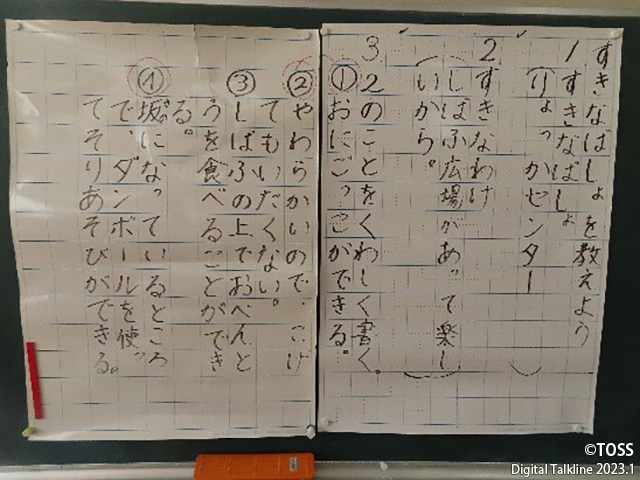 すきなばしょを教えよう
1 すきなばしょ
りょっかセンター
2 すきなわけ
しばふ広場があって楽し
いから。
3 2のことをくわしく書く。
①おにごっこができる。
②やわらかいので、こけ
てもいたくない。
③しばふの上でおべんと
うを食べることができ
る。
④坂になっているところ
で、ダンボールを使っ
てそりあそびができる。
©TOSS
Digital Talkline 2023.1